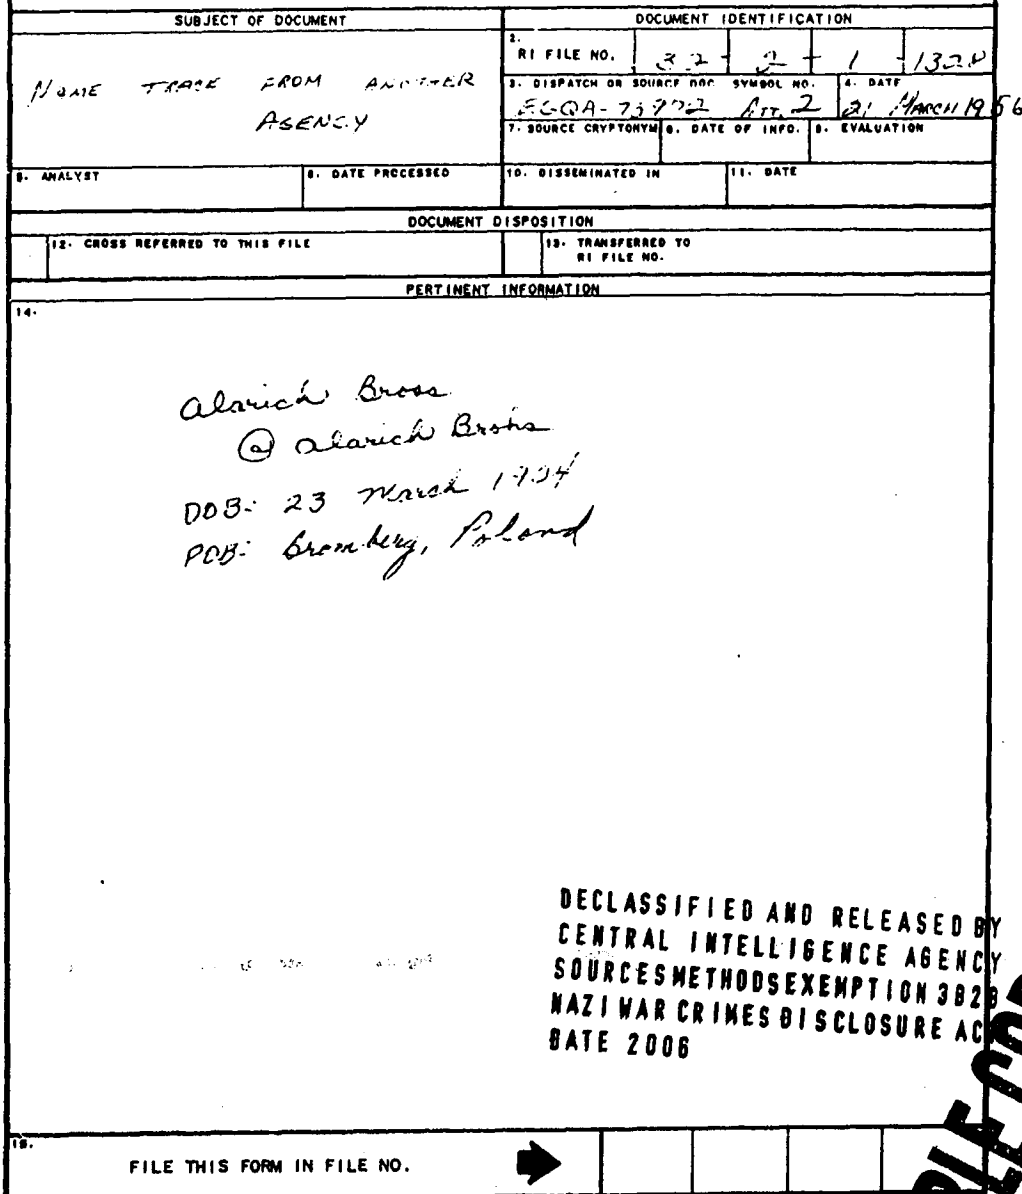 SUBJECT OF DOCUMENT
NAME TRACE FROM ANOTHER
AGENCY
DOCUMENT IDENTIFICATION
2.
RI FILE NO. 32 - 2 - 1 -
3. DISPATCH OR SOURCE DOC. SYMBOL NO.
ATT. 2
4. DATE
21 MARCH 1956
7. SOURCE CRYPTONYM
8. DATE OF INFO.
9. EVALUATION
5. ANALYST
6. DATE PROCESSED
10. DISSEMINATED IN
11. DATE
DOCUMENT DISPOSITION
12. CROSS REFERRED TO THIS FILE
13. TRANSFERRED TO
RI FILE NO.
PERTINENT INFORMATION
14.
Alarich Bross
@ Alarich Brohs
DOB: 23 March
POB: Bromberg, Poland
DECLASSIFIED AND RELEASED BY
CENTRAL INTELLIGENCE AGENCY
SOURCESMETHODSEXEMPTION 3B2B
NAZI WAR CRIMES DISCLOSURE AC
DATE 2006
15.
FILE THIS FORM IN FILE NO.